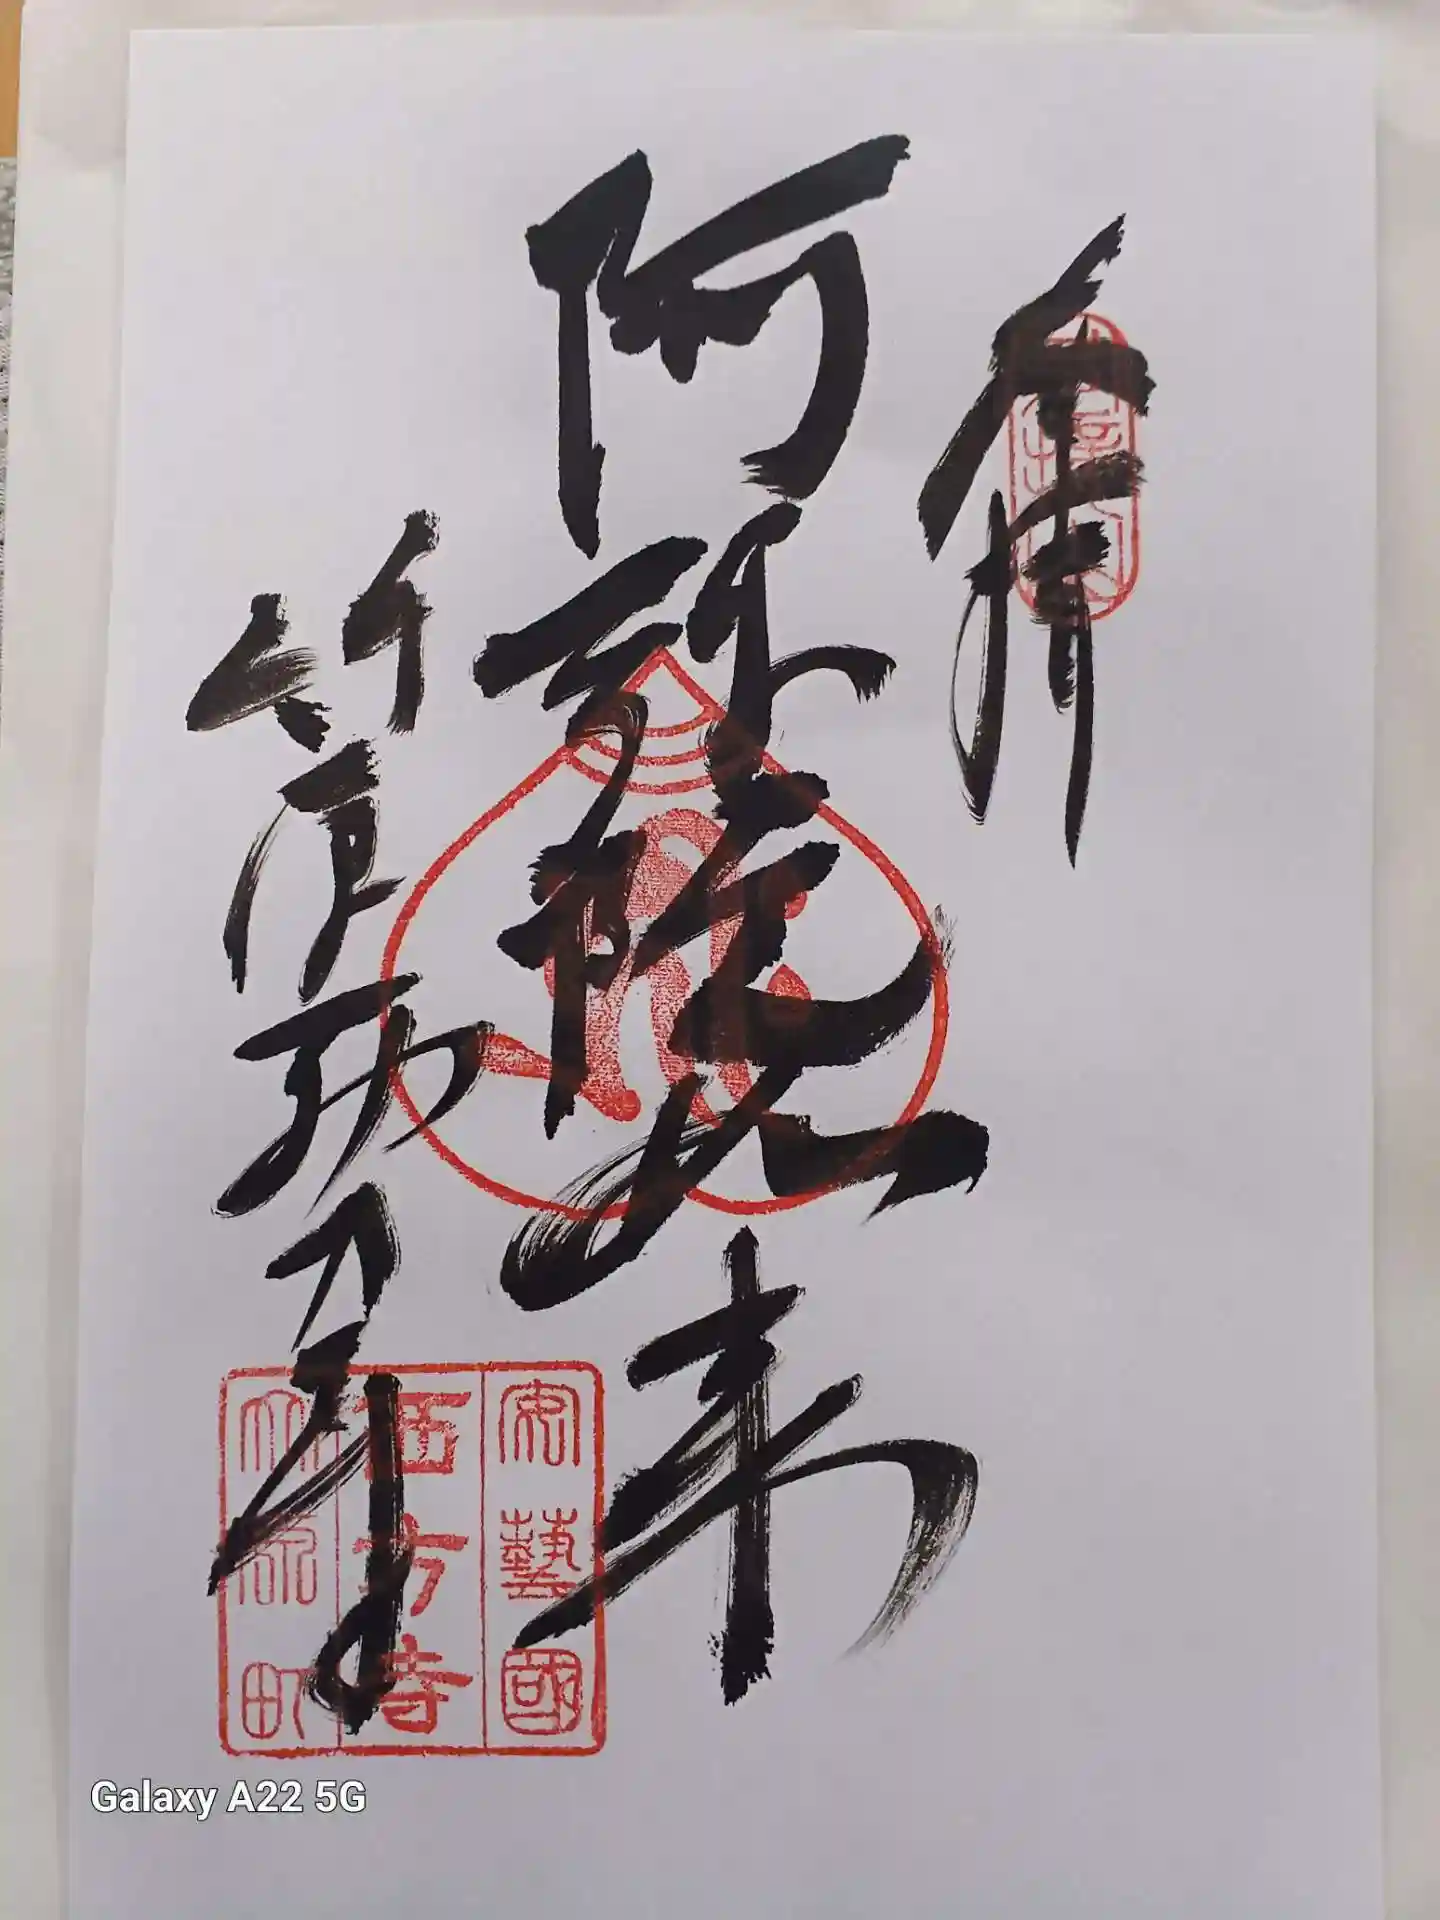 奉拝
阿弥陀如来
竹原
安藝國
西方寺
竹原町
Galaxy A22 5G